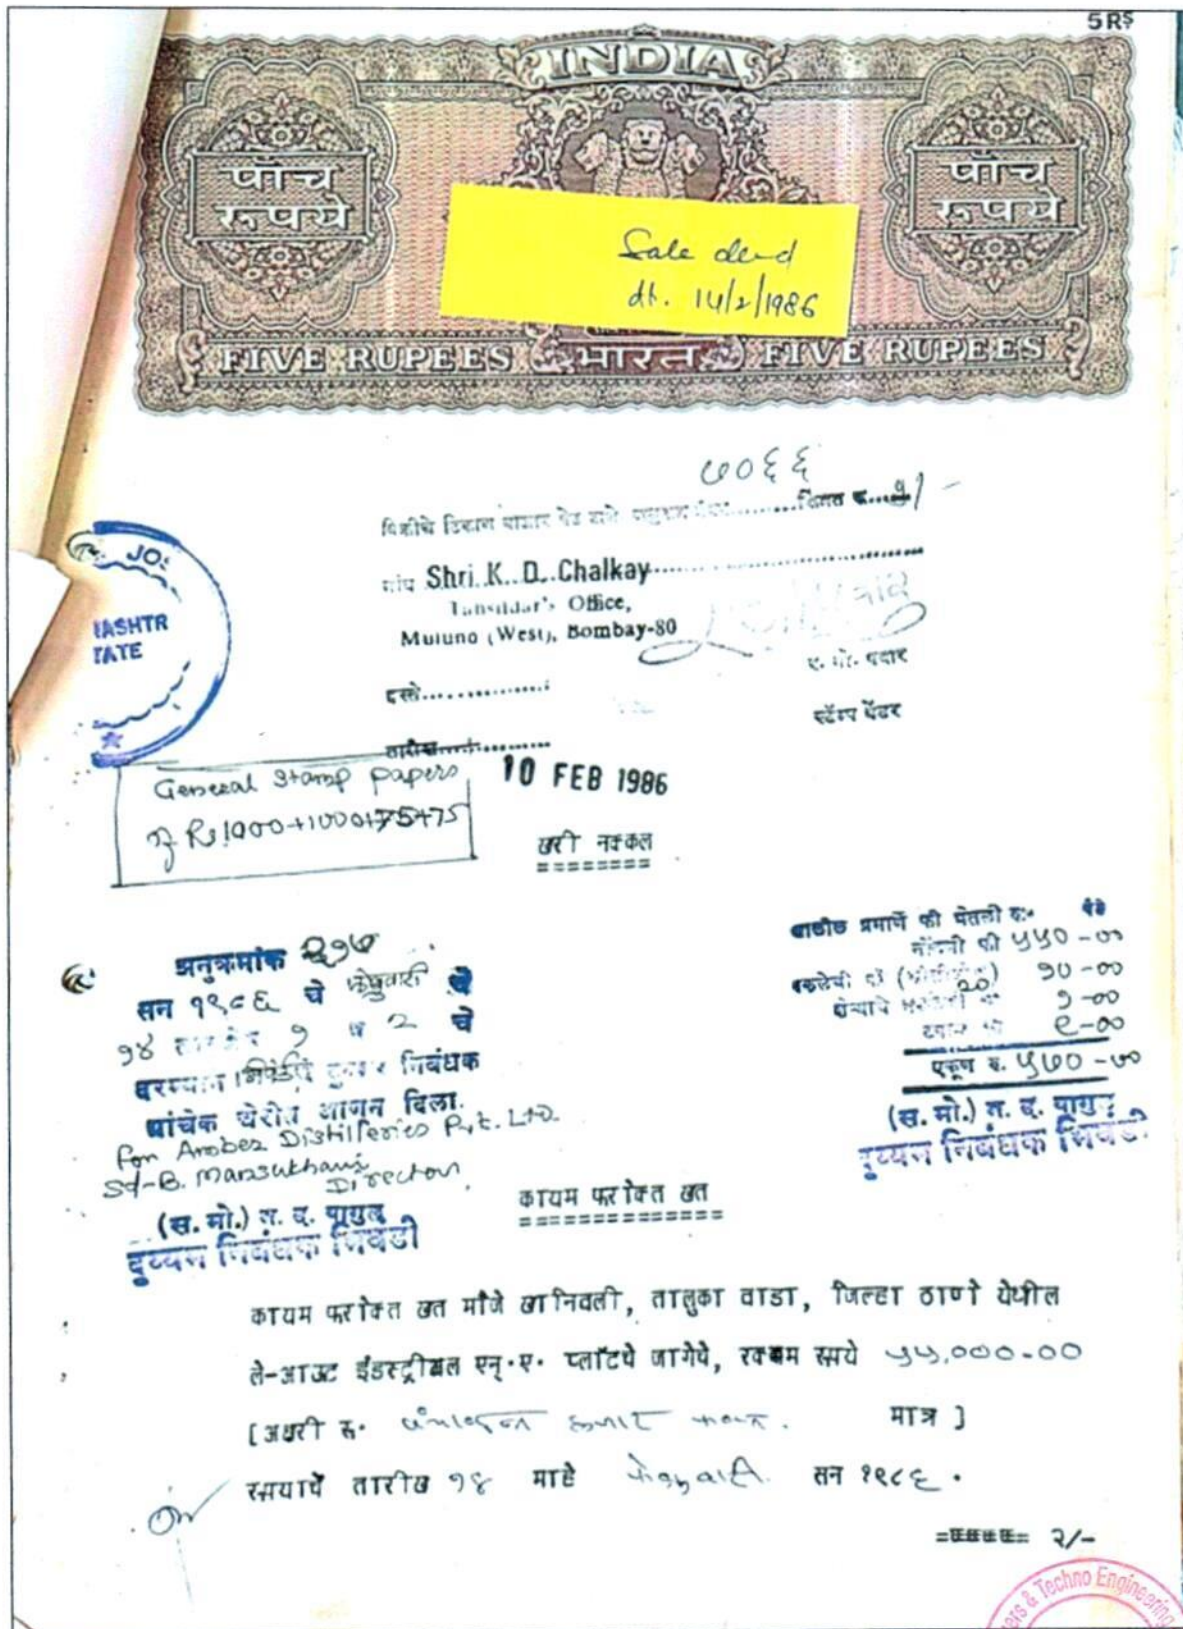 5 RS
INDIA
पाँच रुपये
पाँच रुपये
Sale deed
dt. 14/2/1986
FIVE RUPEES भारत FIVE RUPEES
७०६६
Shri. K. D. Chalkay
Tahsildar's Office,
Mulund (West), Bombay-80
दस्ते
स्टॅम्प वेंडर
तारीख
10 FEB 1986
JOS
ASHTR
TATE
General Stamp papers
of Rs 1000+1000+75+75
खरी नक्कल
अनुक्रमांक
सन १९८६ चे फेब्रुवारी चे
१४ १ व २ चे
दरम्यान दुय्यम निबंधक
यांचेक आणून दिला.
For Arobez Distilleries Pvt. Ltd.
Sd-B. Mansukhani
Director
(स. मो.)
दुय्यम निबंधक भिवंडी
खालील प्रमाणे फी घेतली रु. पैसे
फी ५५०-००
१०-००
१-००
९-००
एकूण रु. ५७०-००
(स. मो.)
दुय्यम निबंधक भिवंडी
कायम फरोक्त खत
कायम फरोक्त खत मौजे खानिवली, तालुका वाडा, जिल्हा ठाणे येथील
ले-आऊट इंडस्ट्रीयल एन्.ए. प्लॉटचे जागेचे, रक्कम रुपये ५५,०००-००
[अक्षरी रु. पंचावन्न हजार मात्र ]
रुपयाचें तारीख १४ माहे फेब्रुवारी सन १९८६ .
२/-
& Techno Engineering